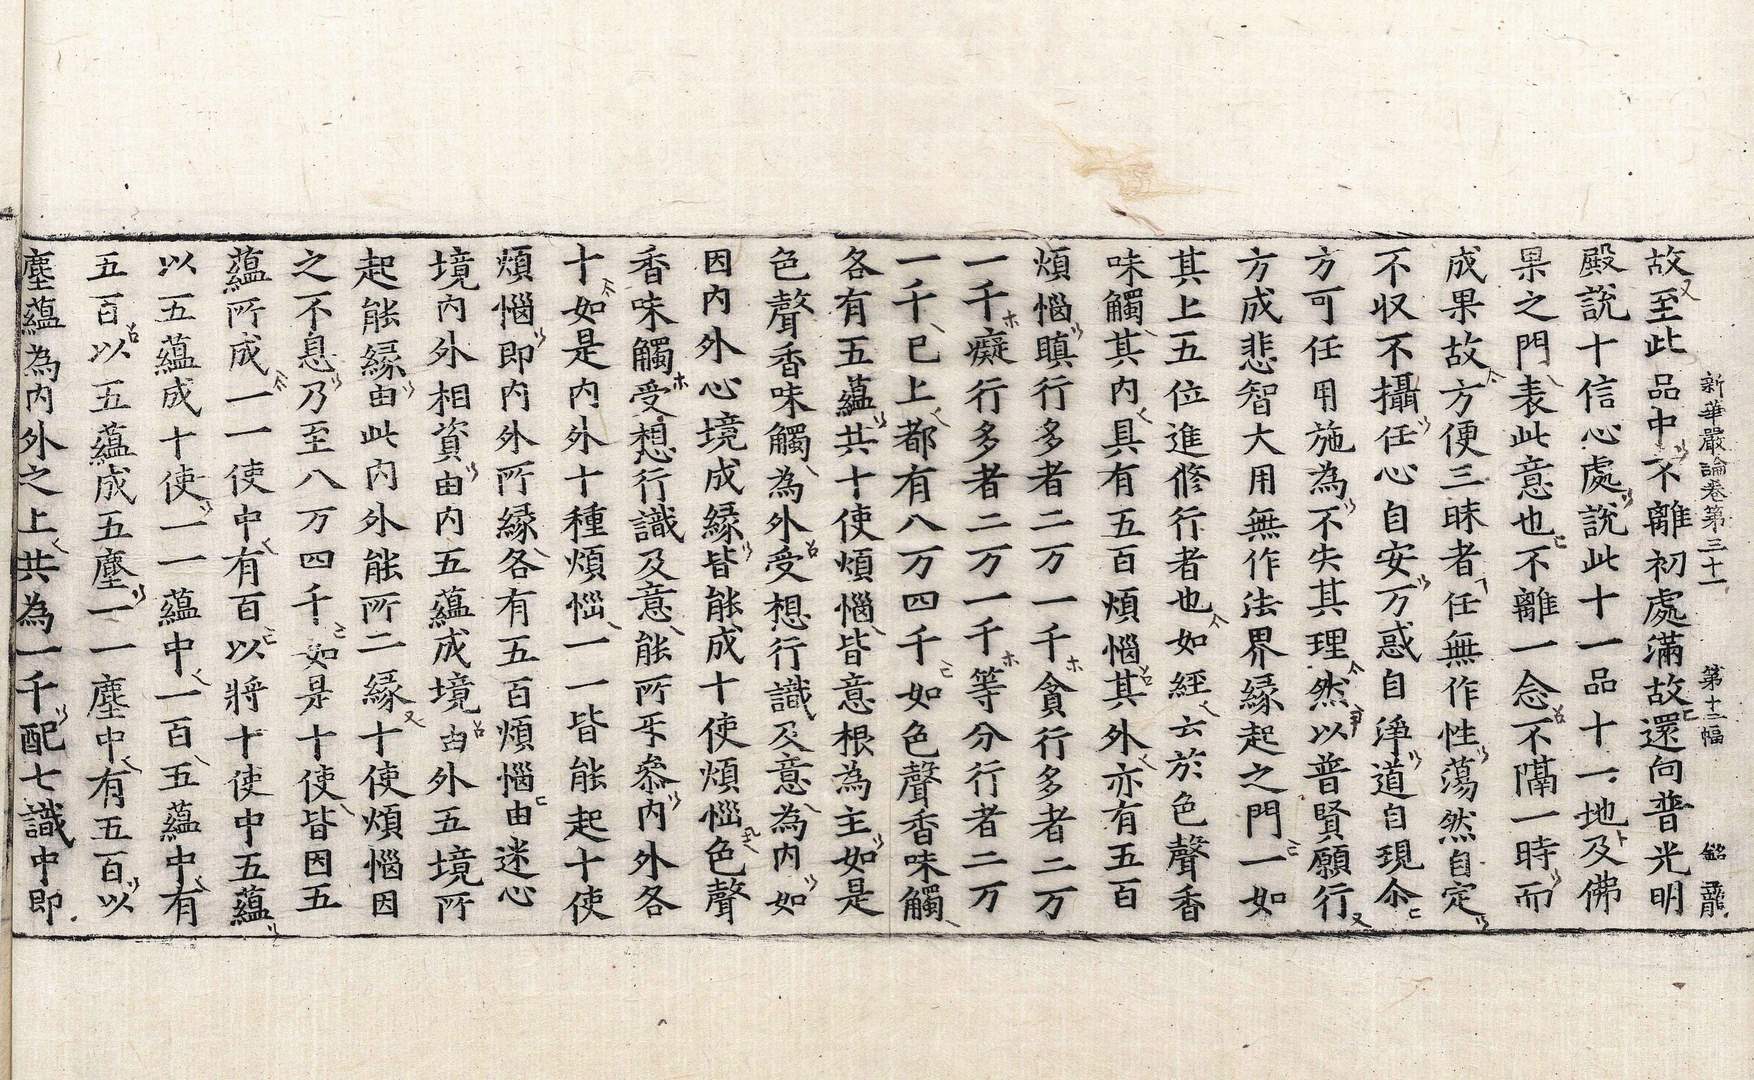 新華嚴論卷第三十一　第十二幅　銘　龍
故至此品中不離初處滿故還向普光明
殿說十信心處說此十一品十一地及佛
果之門表此意也不離一念不隔一時而
成果故方便三昧者任無作性蕩然自定
不収不攝任心自安万惑自淨道自現尒
方可任用施為不失其理然以普賢願行
方成悲智大用無作法界緣起之門一如
其上五位進修行者也如經云於色聲香
味觸其內具有五百煩惱其外亦有五百
煩惱瞋行多者二万一千貪行多者二万
一千癡行多者二万一千等分行者二万
一千已上都有八万四千如色聲香味觸
各有五蘊共十使煩惱皆意根為主如是
色聲香味觸為外受想行識及意為內如
因內外心境成緣皆能成十使煩惱色聲
香味觸受想行識及意能所㸦叅內外各
十如是內外十種煩惱一一皆能起十使
煩惱即內外所緣各有五百煩惱由迷心
境內外相資由內五蘊成境由外五境所
起能緣由此內外能所二緣十使煩惱因
之不息乃至八万四千如是十使皆因五
蘊所成一一使中有百以將十使中五蘊
以五蘊成十使一一蘊中一百五蘊中有
五百以五蘊成五塵一一塵中有五百以
塵蘊為內外之上共為一千配七識中即